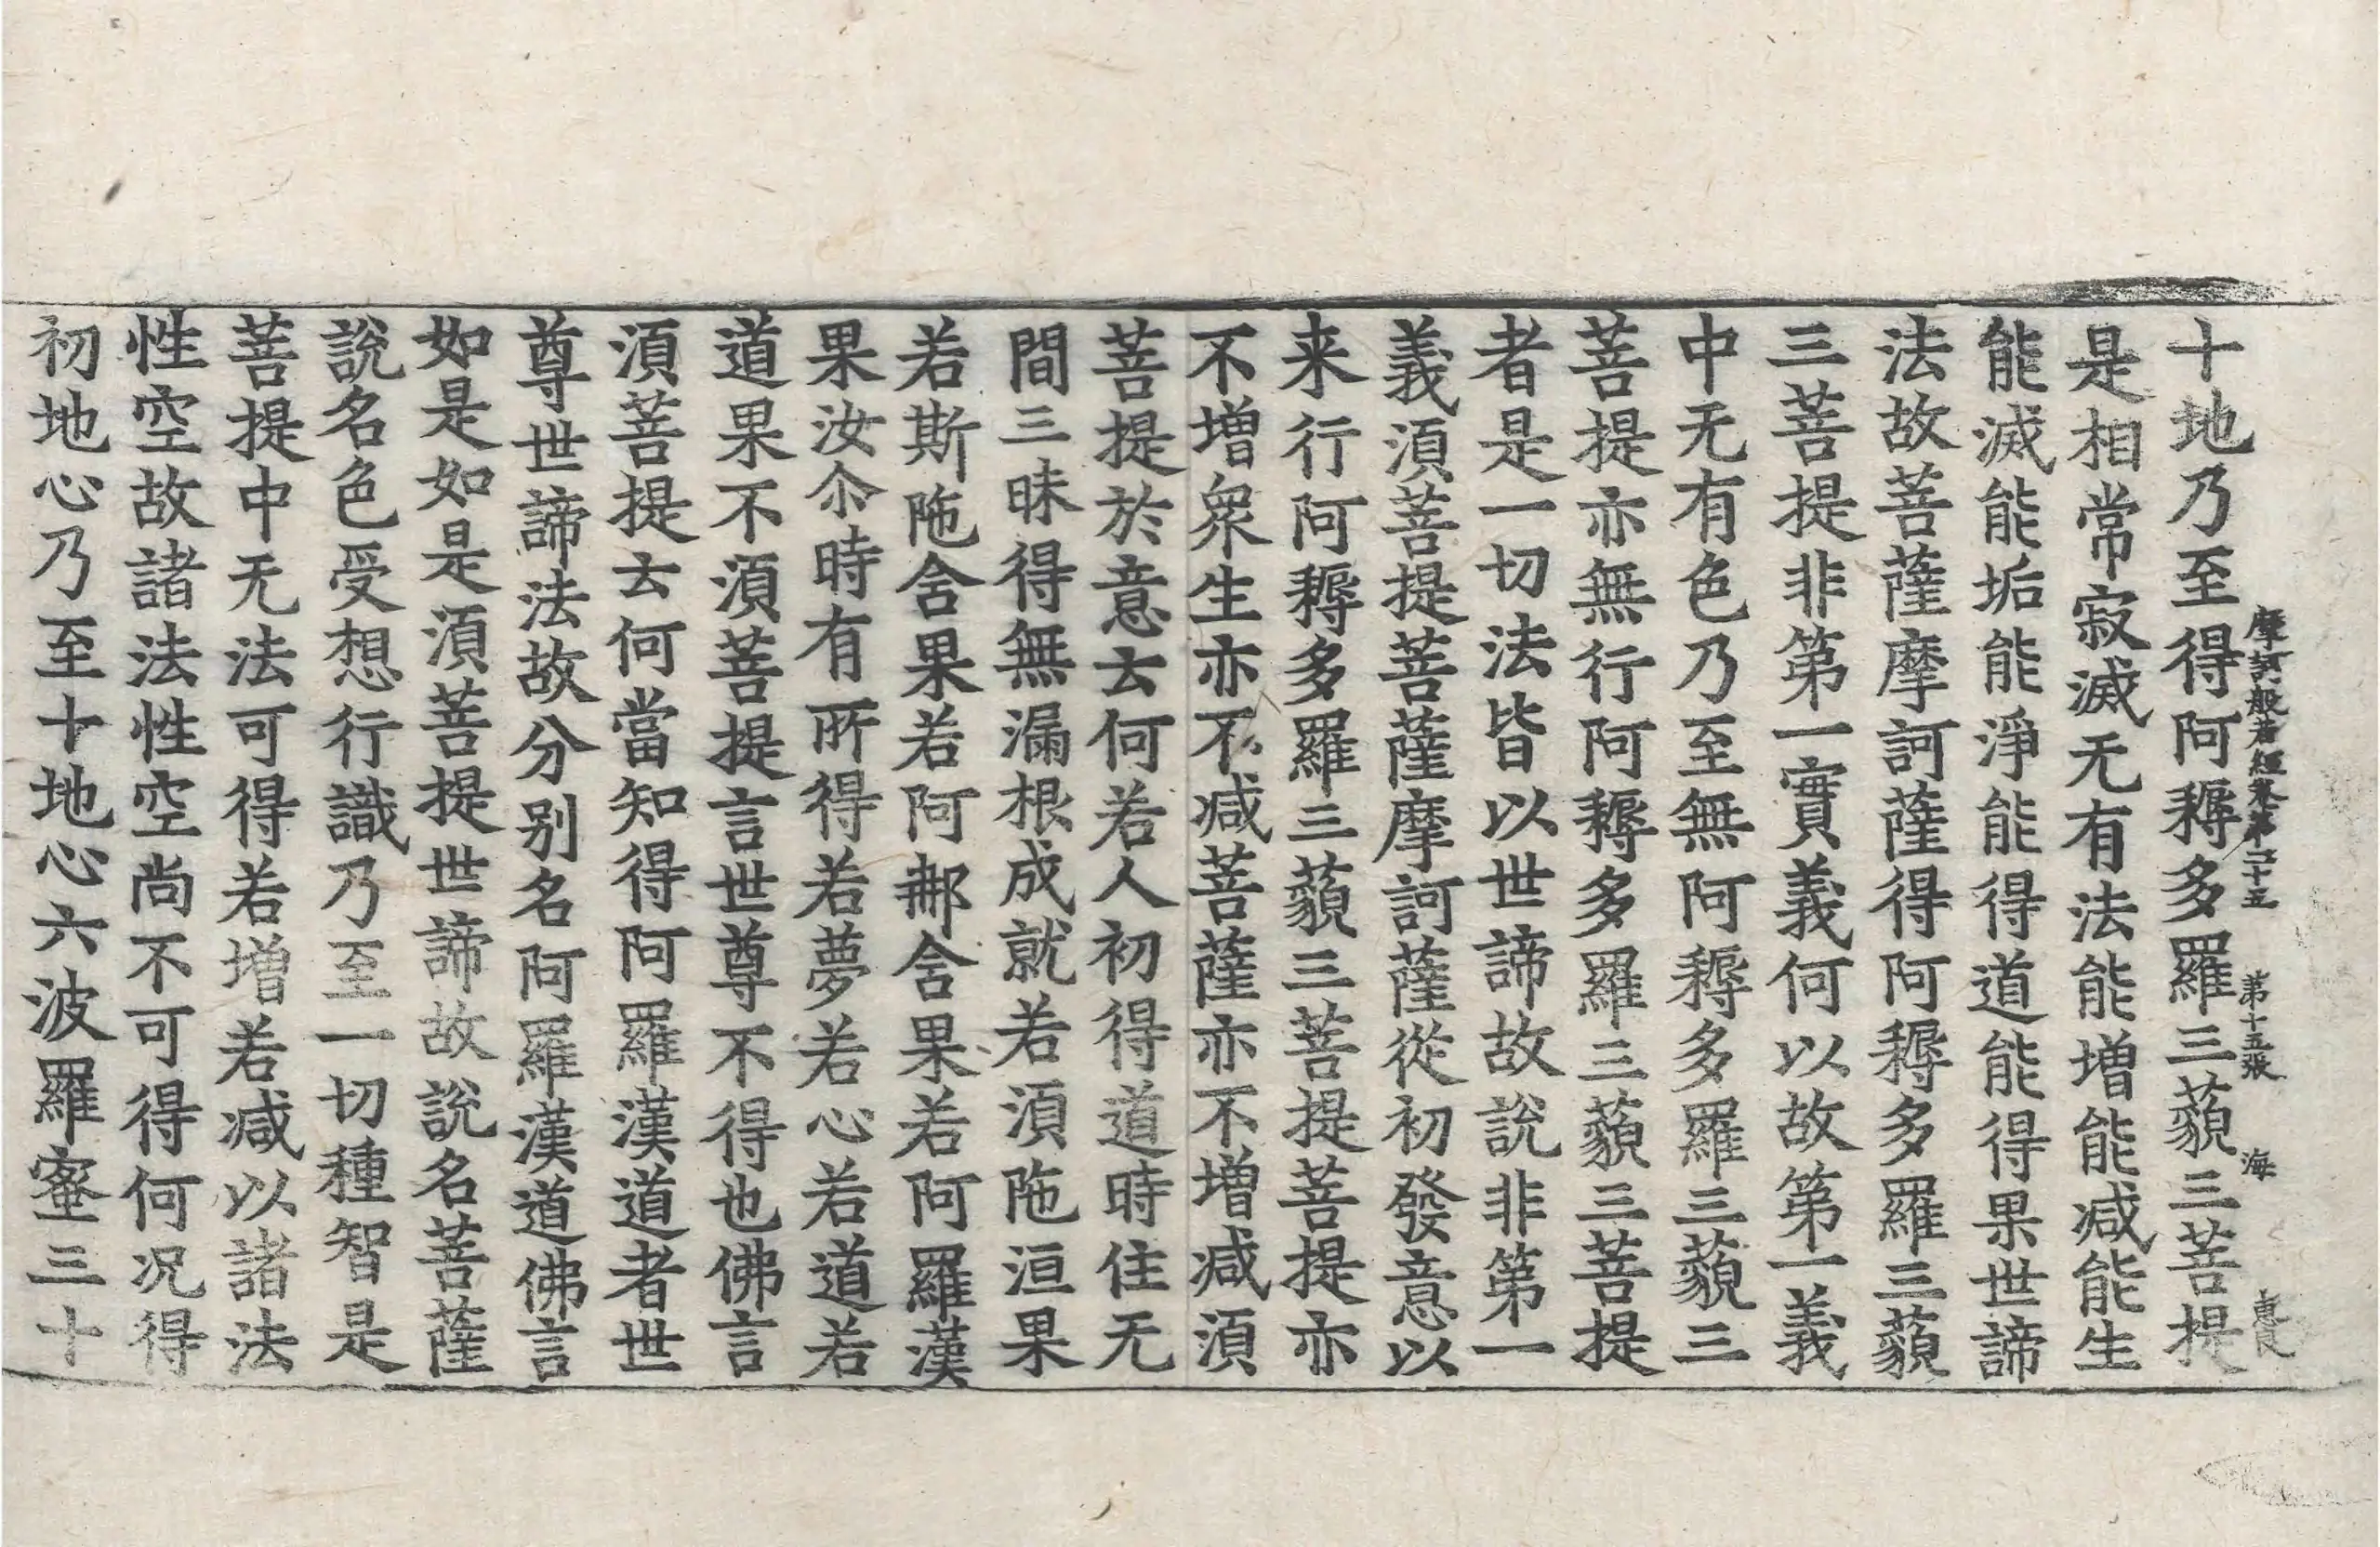 摩訶般若經卷第二十五 第十五張 海
十地乃至得阿耨多羅三藐三菩提
是相常寂滅无有法能增能減能生
能滅能垢能淨能得道能得果世諦
法故菩薩摩訶薩得阿耨多羅三藐
三菩提非第一實義何以故第一義
中无有色乃至無阿耨多羅三藐三
菩提亦無行阿耨多羅三藐三菩提
者是一切法皆以世諦故說非第一
義湏菩提菩薩摩訶薩從初發意以
来行阿耨多羅三藐三菩提菩提亦
不增衆生亦不减菩薩亦不增减湏
菩提於意云何若人初得道時住无
間三昧得無漏根成就若湏陁洹果
若斯陁含果若阿那含果若阿羅漢
果汝尒時有所得若夢若心若道若
道果不湏菩提言世尊不得也佛言
湏菩提云何當知得阿羅漢道者世
尊世諦法故分别名阿羅漢道佛言
如是如是湏菩提世諦故說名菩薩
說名色受想行識乃至一切種智是
菩提中无法可得若增若减以諸法
性空故諸法性空尚不可得何况得
初地心乃至十地心六波羅蜜三十